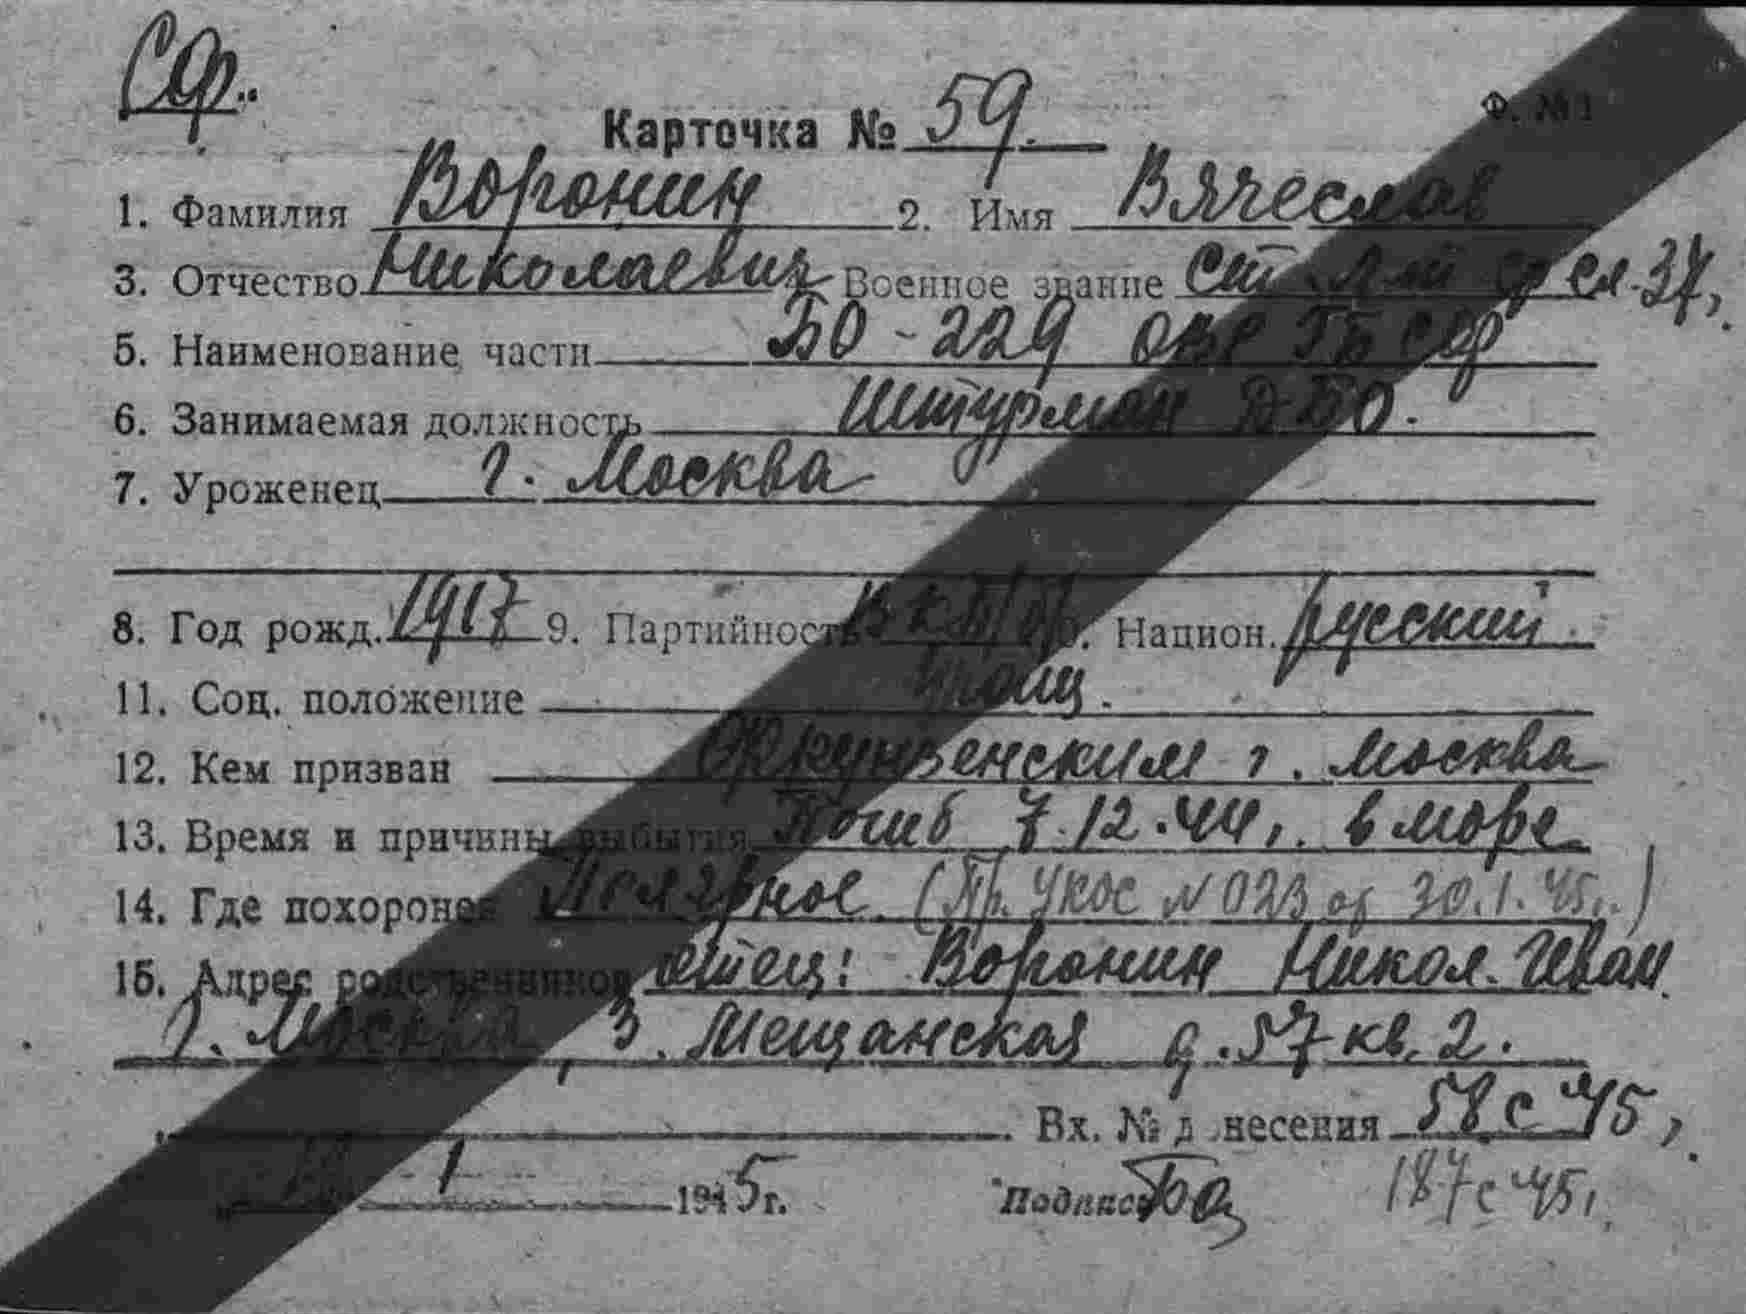 СФ.
Карточка № 59.
Ф. №1
1. Фамилия Воронин 2. Имя Вячеслав
3. Отчество Николаевич Военное звание ст. л-т ср сл. 37г.
5. Наименование части БО-229 ОВР ГБ СФ
6. Занимаемая должность Штурман ДБО.
7. Уроженец г. Москва
8. Год рожд. 1917 9. Партийность ВКП/б/ 10. Национ. русский
11. Соц. положение
12. Кем призван Фрунзенским г. Москва
13. Время и причины выбытия Погиб 7.12.44г. в море
14. Где похоронен Полярное (Пр. УКОС № 023 от 30.1.45г.)
15. Адрес родственников отец: Воронин Никол. Иван.
г. Москва, 3. Мещанская д. 57 кв. 2.
Вх. № донесения 58с 45г.
1 1945г. Подпись 187с 45г.